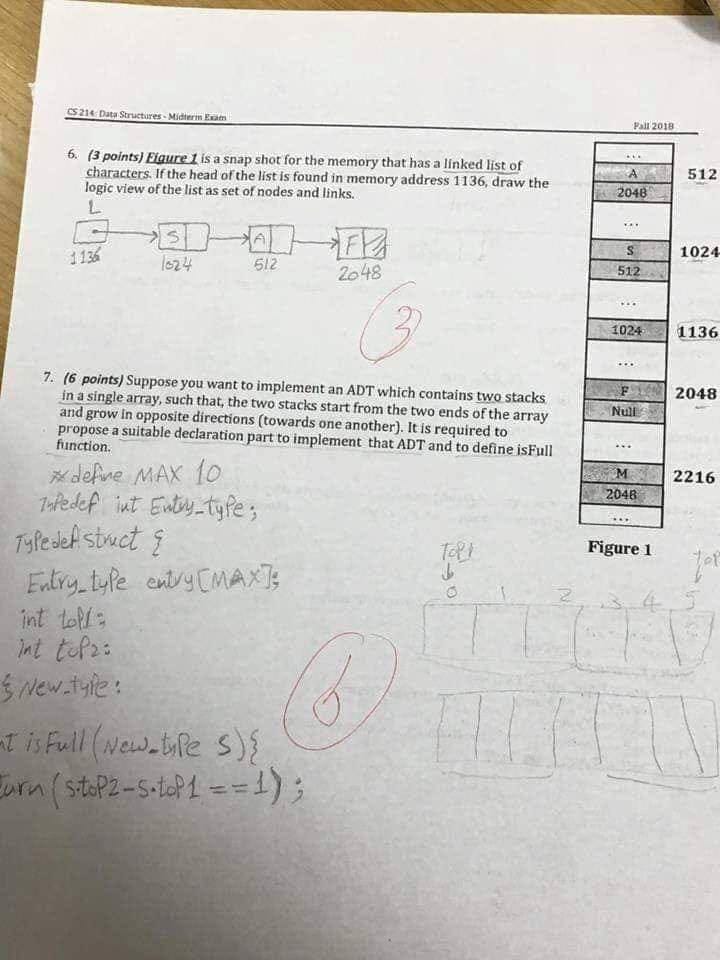 CS 214: Data Structures - Midterm Exam
Fall 2018
6. (3 points) Figure 1 is a snap shot for the memory that has a linked list of
characters. If the head of the list is found in memory address 1136, draw the
logic view of the list as set of nodes and links.
L
S A F
1136 1024 512 2048
3
...
A 512
2048
...
S 1024
512
...
1024 1136
...
F 2048
Null
...
M 2216
2048
...
Figure 1
7. (6 points) Suppose you want to implement an ADT which contains two stacks
in a single array, such that, the two stacks start from the two ends of the array
and grow in opposite directions (towards one another). It is required to
propose a suitable declaration part to implement that ADT and to define isFull
function.
# define MAX 10
Typedef int Entry_type;
Typedef struct {
Entry_type entry[MAX];
int top1;
int top2;
} New_type;
nt isFull (New_type s){
turn (s.top2-s.top1 ==1);
6
Top1 Top
0 1 2 3 4 5